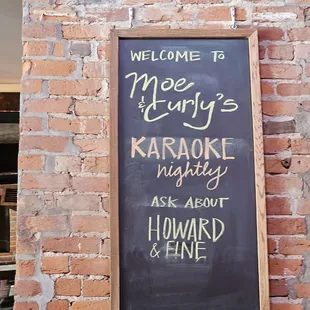 WELCOME TO
Moe
& Curly's
KARAOKE
nightly
ASK ABOUT
HOWARD
& FINE